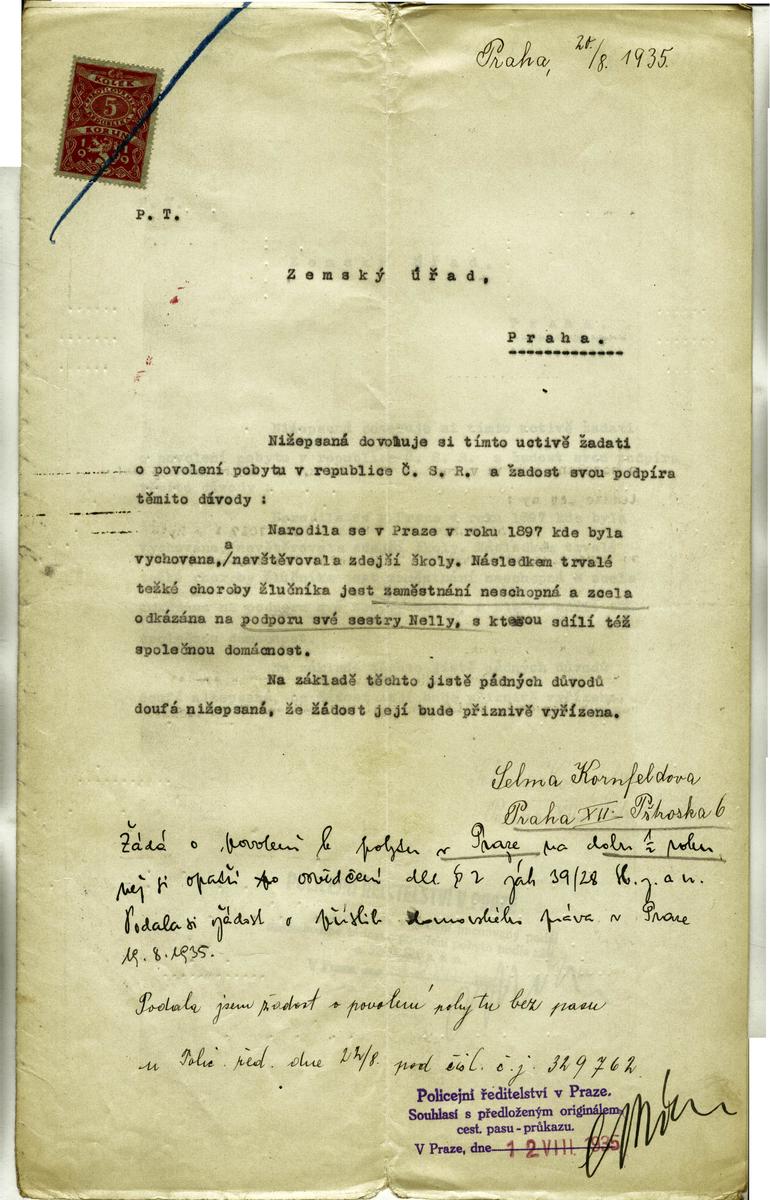 Praha, 20/8. 1935.
KOLEK
5
KORUN
1919
P. T.
Zemský úřad,
Praha.
Nižepsaná dovoluje si tímto uctivě žadati
o povolení pobytu v republice Č. S. R. a žadost svou podpíra
těmito důvody :
Narodila se v Praze v roku 1897 kde byla
a
vychovana,/navštěvovala zdejší školy. Následkem trvalé
težké choroby žlučníka jest zaměstnání neschopná a zcela
odkázána na podporu své sestry Nelly, s kterou sdílí též
společnou domácnost.
Na základě těchto jistě pádných důvodů
doufá nižepsaná, že žádost její bude přiznivě vyřízena.
Selma Kornfeldova
Praha XII - 6
Žádá o povolení k pobytu v Praze na dobu 1/2 roku,
než si opatří osvědčení dle § 2 zák 39/28 Sb. z. a n.
Podala si žádost o příslib domovského práva v Praze
19. 8. 1935.
Podala jsem žadost o povolení pobytu bez pasu
u Polic. řed. dne 22/8. pod čísl. č.j. 329762
Policejní ředitelství v Praze.
Souhlasí s předloženým originálem
cest. pasu - průkazu.
V Praze, dne 12 VIII 1935